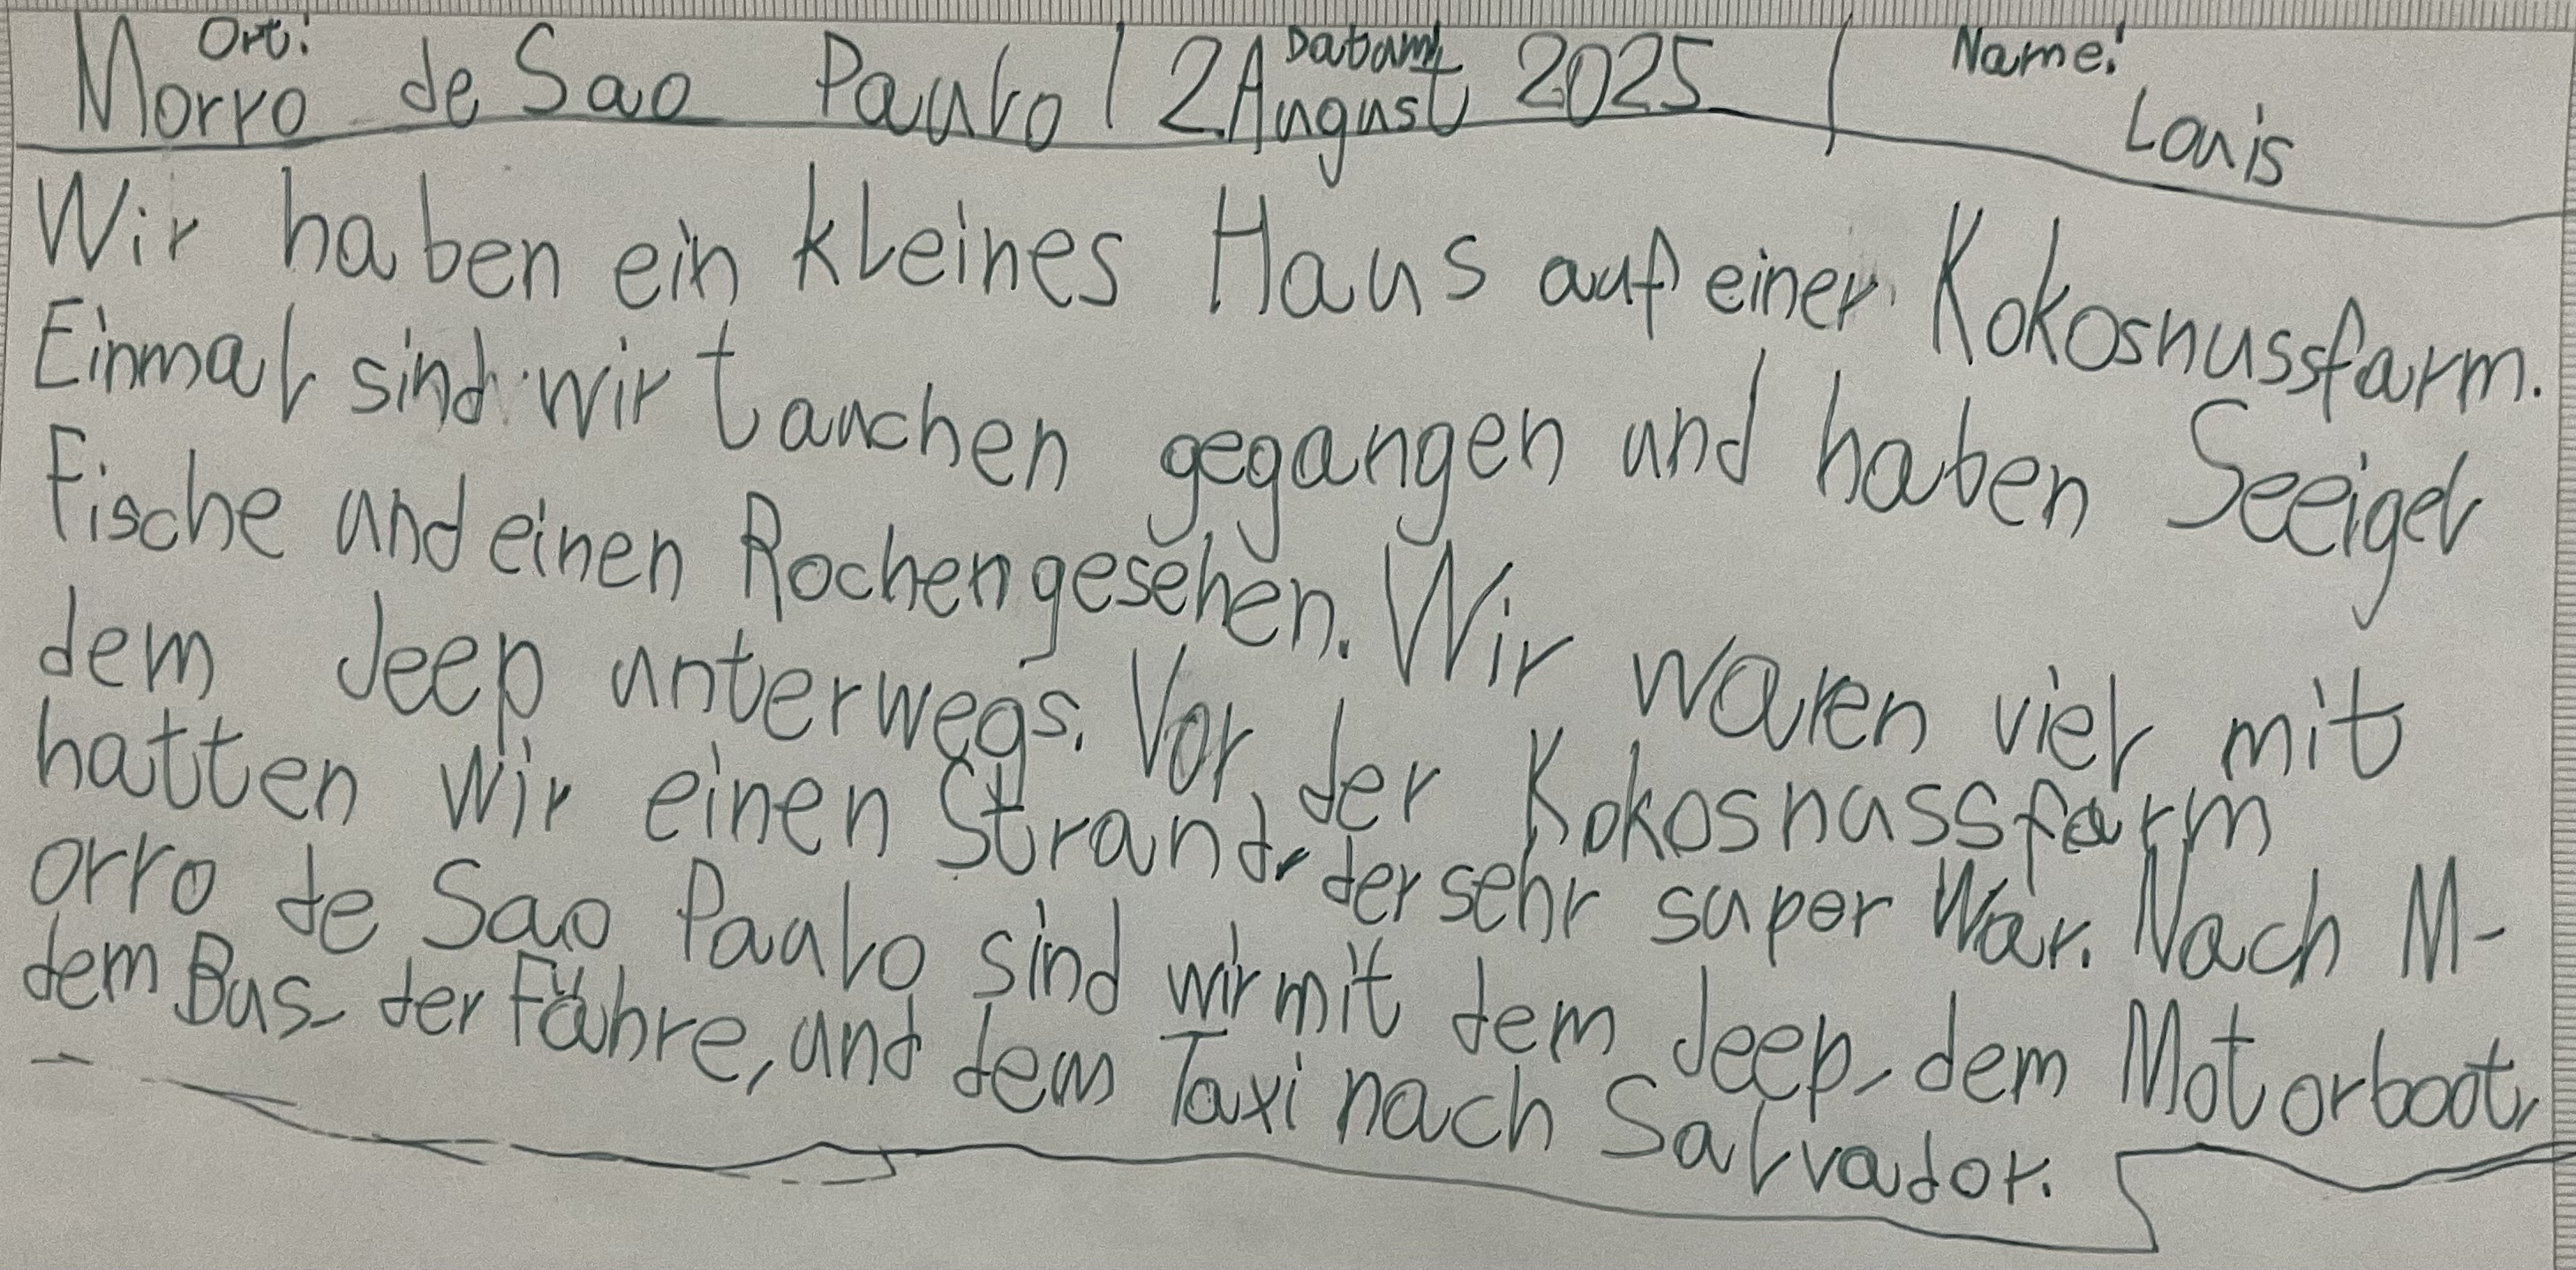 Ort: Datum Name:
Morro de Sao Paulo | 2August 2025 | Louis
Wir haben ein kleines Haus auf einer Kokosnussfarm.
Einmal sind wir tauchen gegangen und haben Seeigel
Fische und einen Rochen gesehen. Wir waren viel mit
dem Jeep unterwegs. Vor der Kokosnussfarm
hatten wir einen Strand, der sehr super war. Nach M-
orro de Sao Paulo sind wir mit dem Jeep, dem Motorboot,
dem Bus, der Fähre, und dem Taxi nach Salvador.